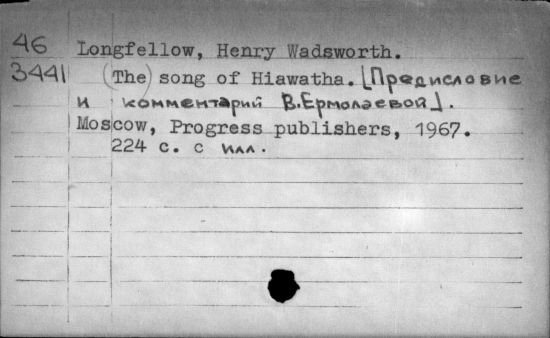 46 Longfellow, Henry Wadsworth.
3441 (The) song of Hiawatha. [Предисловие
и комментарий В.Ермолаевой].
Moscow, Progress publishers, 1967.
224 с. с илл.